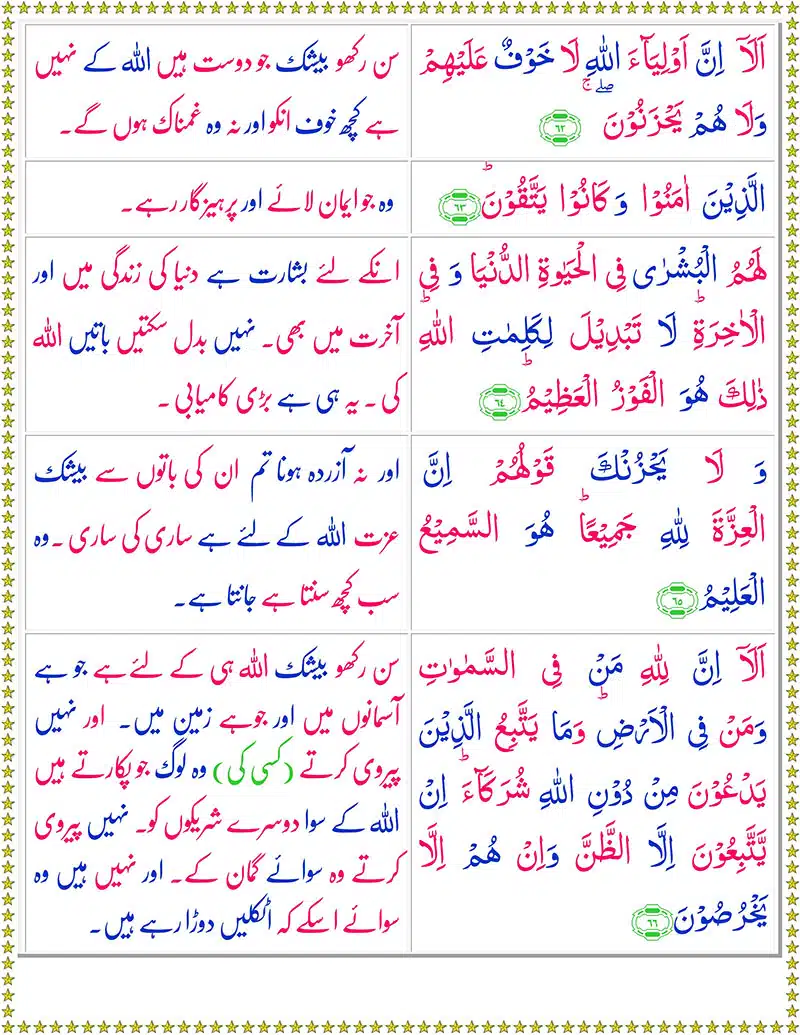 اَلَاۤ اِنَّ اَوْلِيَآءَ اللّٰهِ لَا خَوْفٌ عَلَيْهِمْ
وَلَا هُمْ يَحْزَنُوْنَ ۖۚ ٦٢
سن رکھو بیشک جو دوست ہیں اللہ کے نہیں
ہے کچھ خوف انکو اور نہ وہ غمناک ہوں گے۔
الَّذِيْنَ اٰمَنُوْا وَ كَانُوْا يَتَّقُوْنَؕ ٦٣
وہ جو ایمان لائے اور پرہیزگار رہے۔
لَهُمُ الْبُشْرٰى فِى الْحَيٰوةِ الدُّنْيَا وَ فِى
الْاٰخِرَةِؕ لَا تَبْدِيْلَ لِكَلِمٰتِ اللّٰهِؕ
ذٰلِكَ هُوَ الْفَوْزُ الْعَظِيْمُؕ ٦٤
انکے لئے بشارت ہے دنیا کی زندگی میں اور
آخرت میں بھی۔ نہیں بدل سکتیں باتیں اللہ
کی۔ یہ ہی ہے بڑی کامیابی۔
وَ لَا يَحْزُنْكَ قَوْلُهُمْ اِنَّ
الْعِزَّةَ لِلّٰهِ جَمِيْعًاؕ هُوَ السَّمِيْعُ
الْعَلِيْمُ ٦٥
اور نہ آزردہ ہونا تم ان کی باتوں سے بیشک
عزت اللہ کے لئے ہے ساری کی ساری۔ وہ
سب کچھ سنتا ہے جانتا ہے۔
اَلَاۤ اِنَّ لِلّٰهِ مَنْ فِى السَّمٰوٰتِ
وَمَنْ فِى الْاَرْضِؕ وَمَا يَتَّبِعُ الَّذِيْنَ
يَدْعُوْنَ مِنْ دُوْنِ اللّٰهِ شُرَكَآءَؕ اِنْ
يَّتَّبِعُوْنَ اِلَّا الظَّنَّ وَاِنْ هُمْ اِلَّا
يَخْرُصُوْنَ ٦٦
سن رکھو بیشک اللہ ہی کے لئے ہے جو ہے
آسمانوں میں اور جو ہے زمین میں۔ اور نہیں
پیروی کرتے (کسی کی) وہ لوگ جو پکارتے ہیں
اللہ کے سوا دوسرے شریکوں کو۔ نہیں پیروی
کرتے وہ سوائے گمان کے۔ اور نہیں ہیں وہ
سوائے اسکے کہ اٹکلیں دوڑا رہے ہیں۔